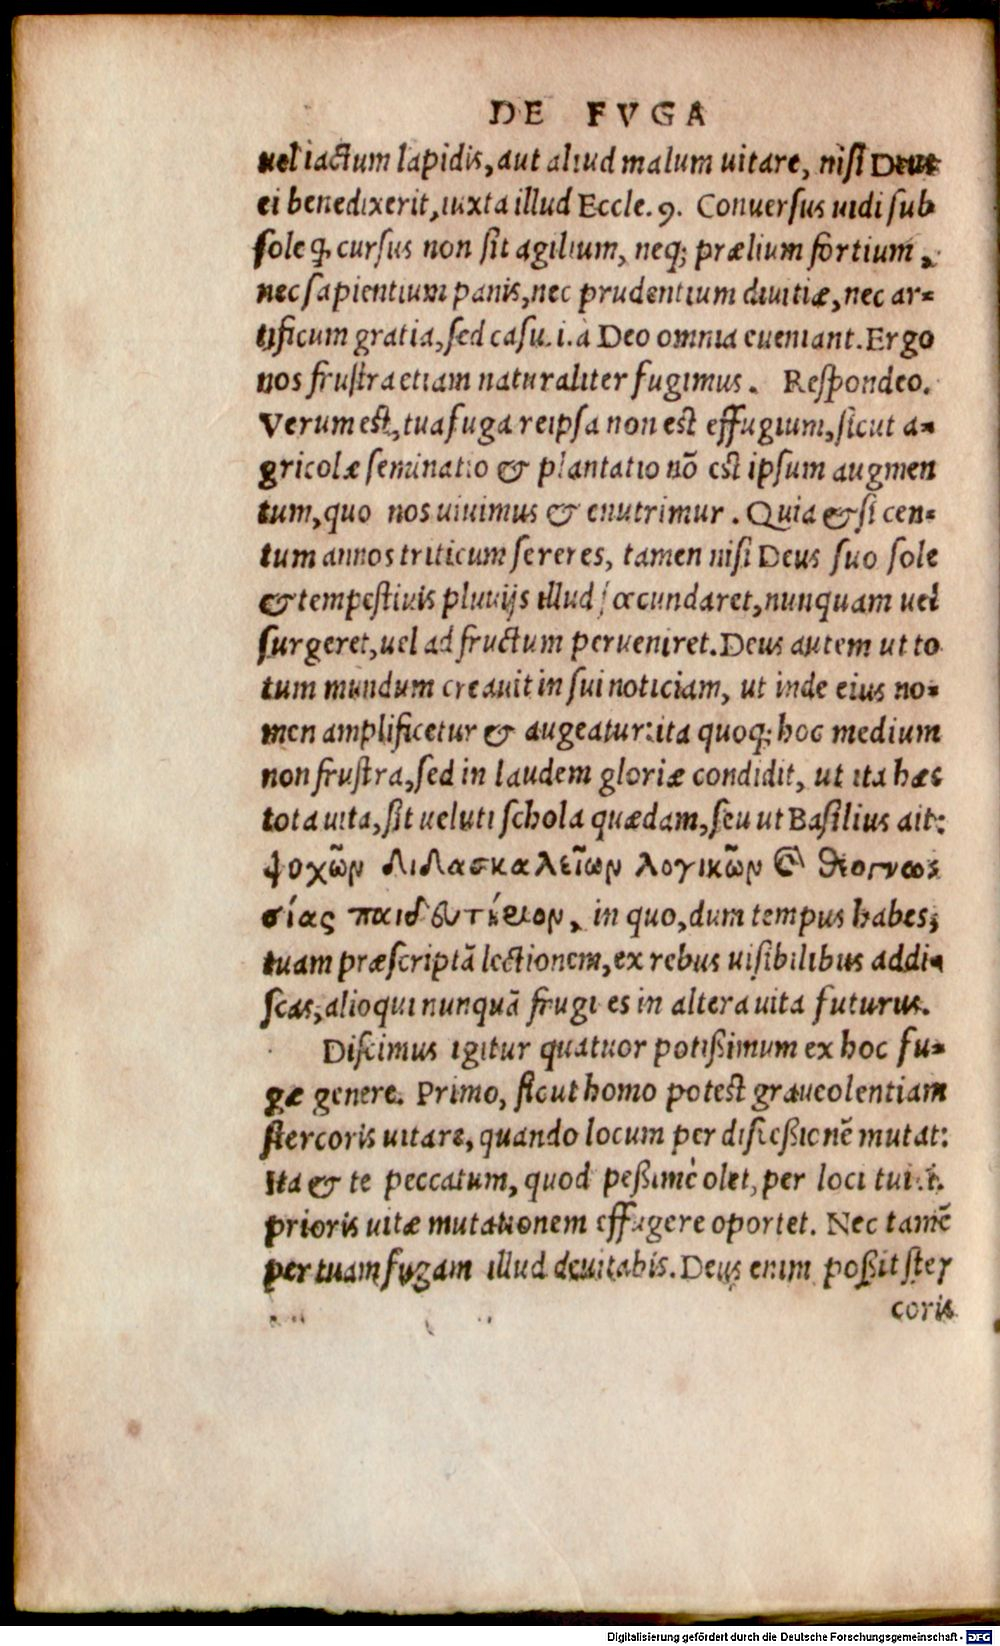 DE FVGA
uel iactum lapidis, aut aliud malum uitare, nisi Deus
ei benedixerit, iuxta illud Eccle. 9. Conuersus uidi sub
sole q̃ cursus non sit agilium, neq; prælium fortium,
nec sapientium panis, nec prudentium diuitiæ, nec ar-
tificum gratia, sed casu .i. à Deo omnia eueniant. Ergo
nos frustra etiam naturaliter fugimus. Respondeo.
Verum est, tua fuga reipsa non est effugium, sicut a-
gricolæ seminatio & plantatio nõ est ipsum augmen
tum, quo nos uiuimus & enutrimur. Quia & si cen-
tum annos triticum sereres, tamen nisi Deus suo sole
& tempestiuis pluuijs illud fœcundaret, nunquam uel
surgeret, uel ad fructum perueniret. Deus autem ut to
tum mundum creauit in sui noticiam, ut inde eius no-
men amplificetur & augeatur: ita quoq; hoc medium
non frustra, sed in laudem gloriæ condidit, ut ita hæc
tota uita, sit ueluti schola quædam, seu ut Basilius ait:
ψυχῶν διδασκαλεῖων λογικῶν ϗ θεογνωσ
σίας παιδευτήριον, in quo, dum tempus habes,
tuam præscriptã lectionem, ex rebus uisibilibus addi-
scas, alioqui nunquã frugi es in altera uita futurus.
Discimus igitur quatuor potißimum ex hoc fu-
gæ genere. Primo, sicut homo potest graueolentiam
stercoris uitare, quando locum per discesßionẽ mutat:
Ita & te peccatum, quod peßimè olet, per loci tui .i.
prioris uitæ mutationem effugere oportet. Nec tamẽ
per tuam fugam illud deuitabis. Deus enim poßit ster
coris
Digitalisierung gefördert durch die Deutsche Forschungsgemeinschaft - DFG